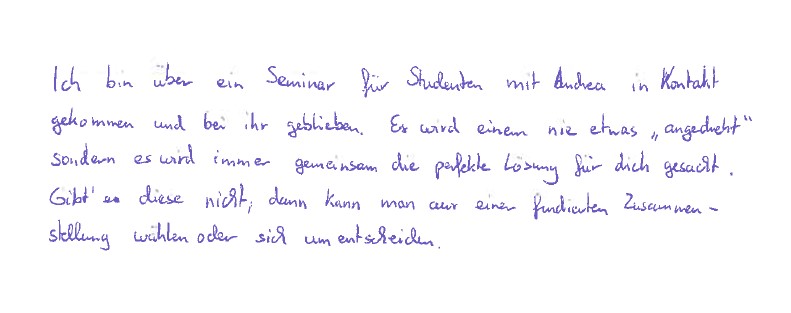 Ich bin über ein Seminar für Studenten mit Andrea in Kontakt
gekommen und bei ihr geblieben. Es wird einem nie etwas „angedreht“
sondern es wird immer gemeinsam die perfekte Lösung für dich gesucht.
Gibt es diese nicht, dann kann man aus einer fundierten Zusammen-
stellung wählen oder sich umentscheiden.